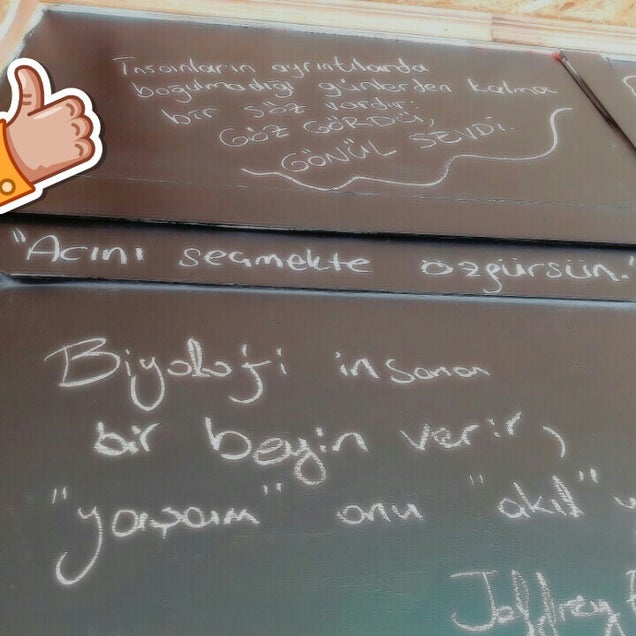 İnsanların ayrıntılarda
boğulmadığı günlerden kalma
bir söz vardır:
GÖZ GÖRDÜ,
GÖNÜL SEVDİ.
"Acını seçmekte özgürsün."
Biyoloji insana
bir beyin verir,
"yaşam" onu "akıl"
Jeffrey